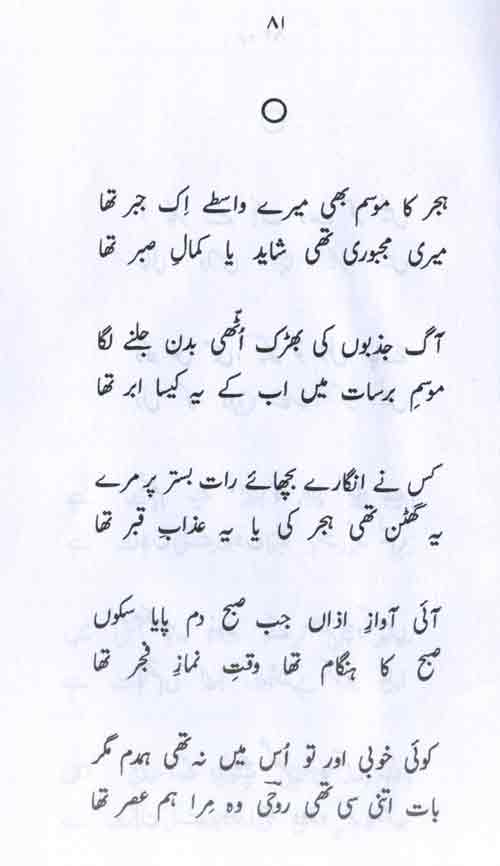 ۸۱
ہجر کا موسم بھی میرے واسطے اِک جبر تھا
میری مجبوری تھی شاید یا کمالِ صبر تھا
آگ جذبوں کی بھڑک اُٹھّی بدن جلنے لگا
موسمِ برسات میں اب کے یہ کیسا ابر تھا
کس نے انگارے بچھائے رات بستر پر مرے
یہ گھٹن تھی ہجر کی یا یہ عذابِ قبر تھا
آئی آوازِ اذاں جب صبح دم پایا سکوں
صبح کا ہنگام تھا وقتِ نمازِ فجر تھا
کوئی خوبی اور تو اُس میں نہ تھی ہمدم مگر
بات اتنی سی تھی روحیؔ وہ مِرا ہم عصر تھا